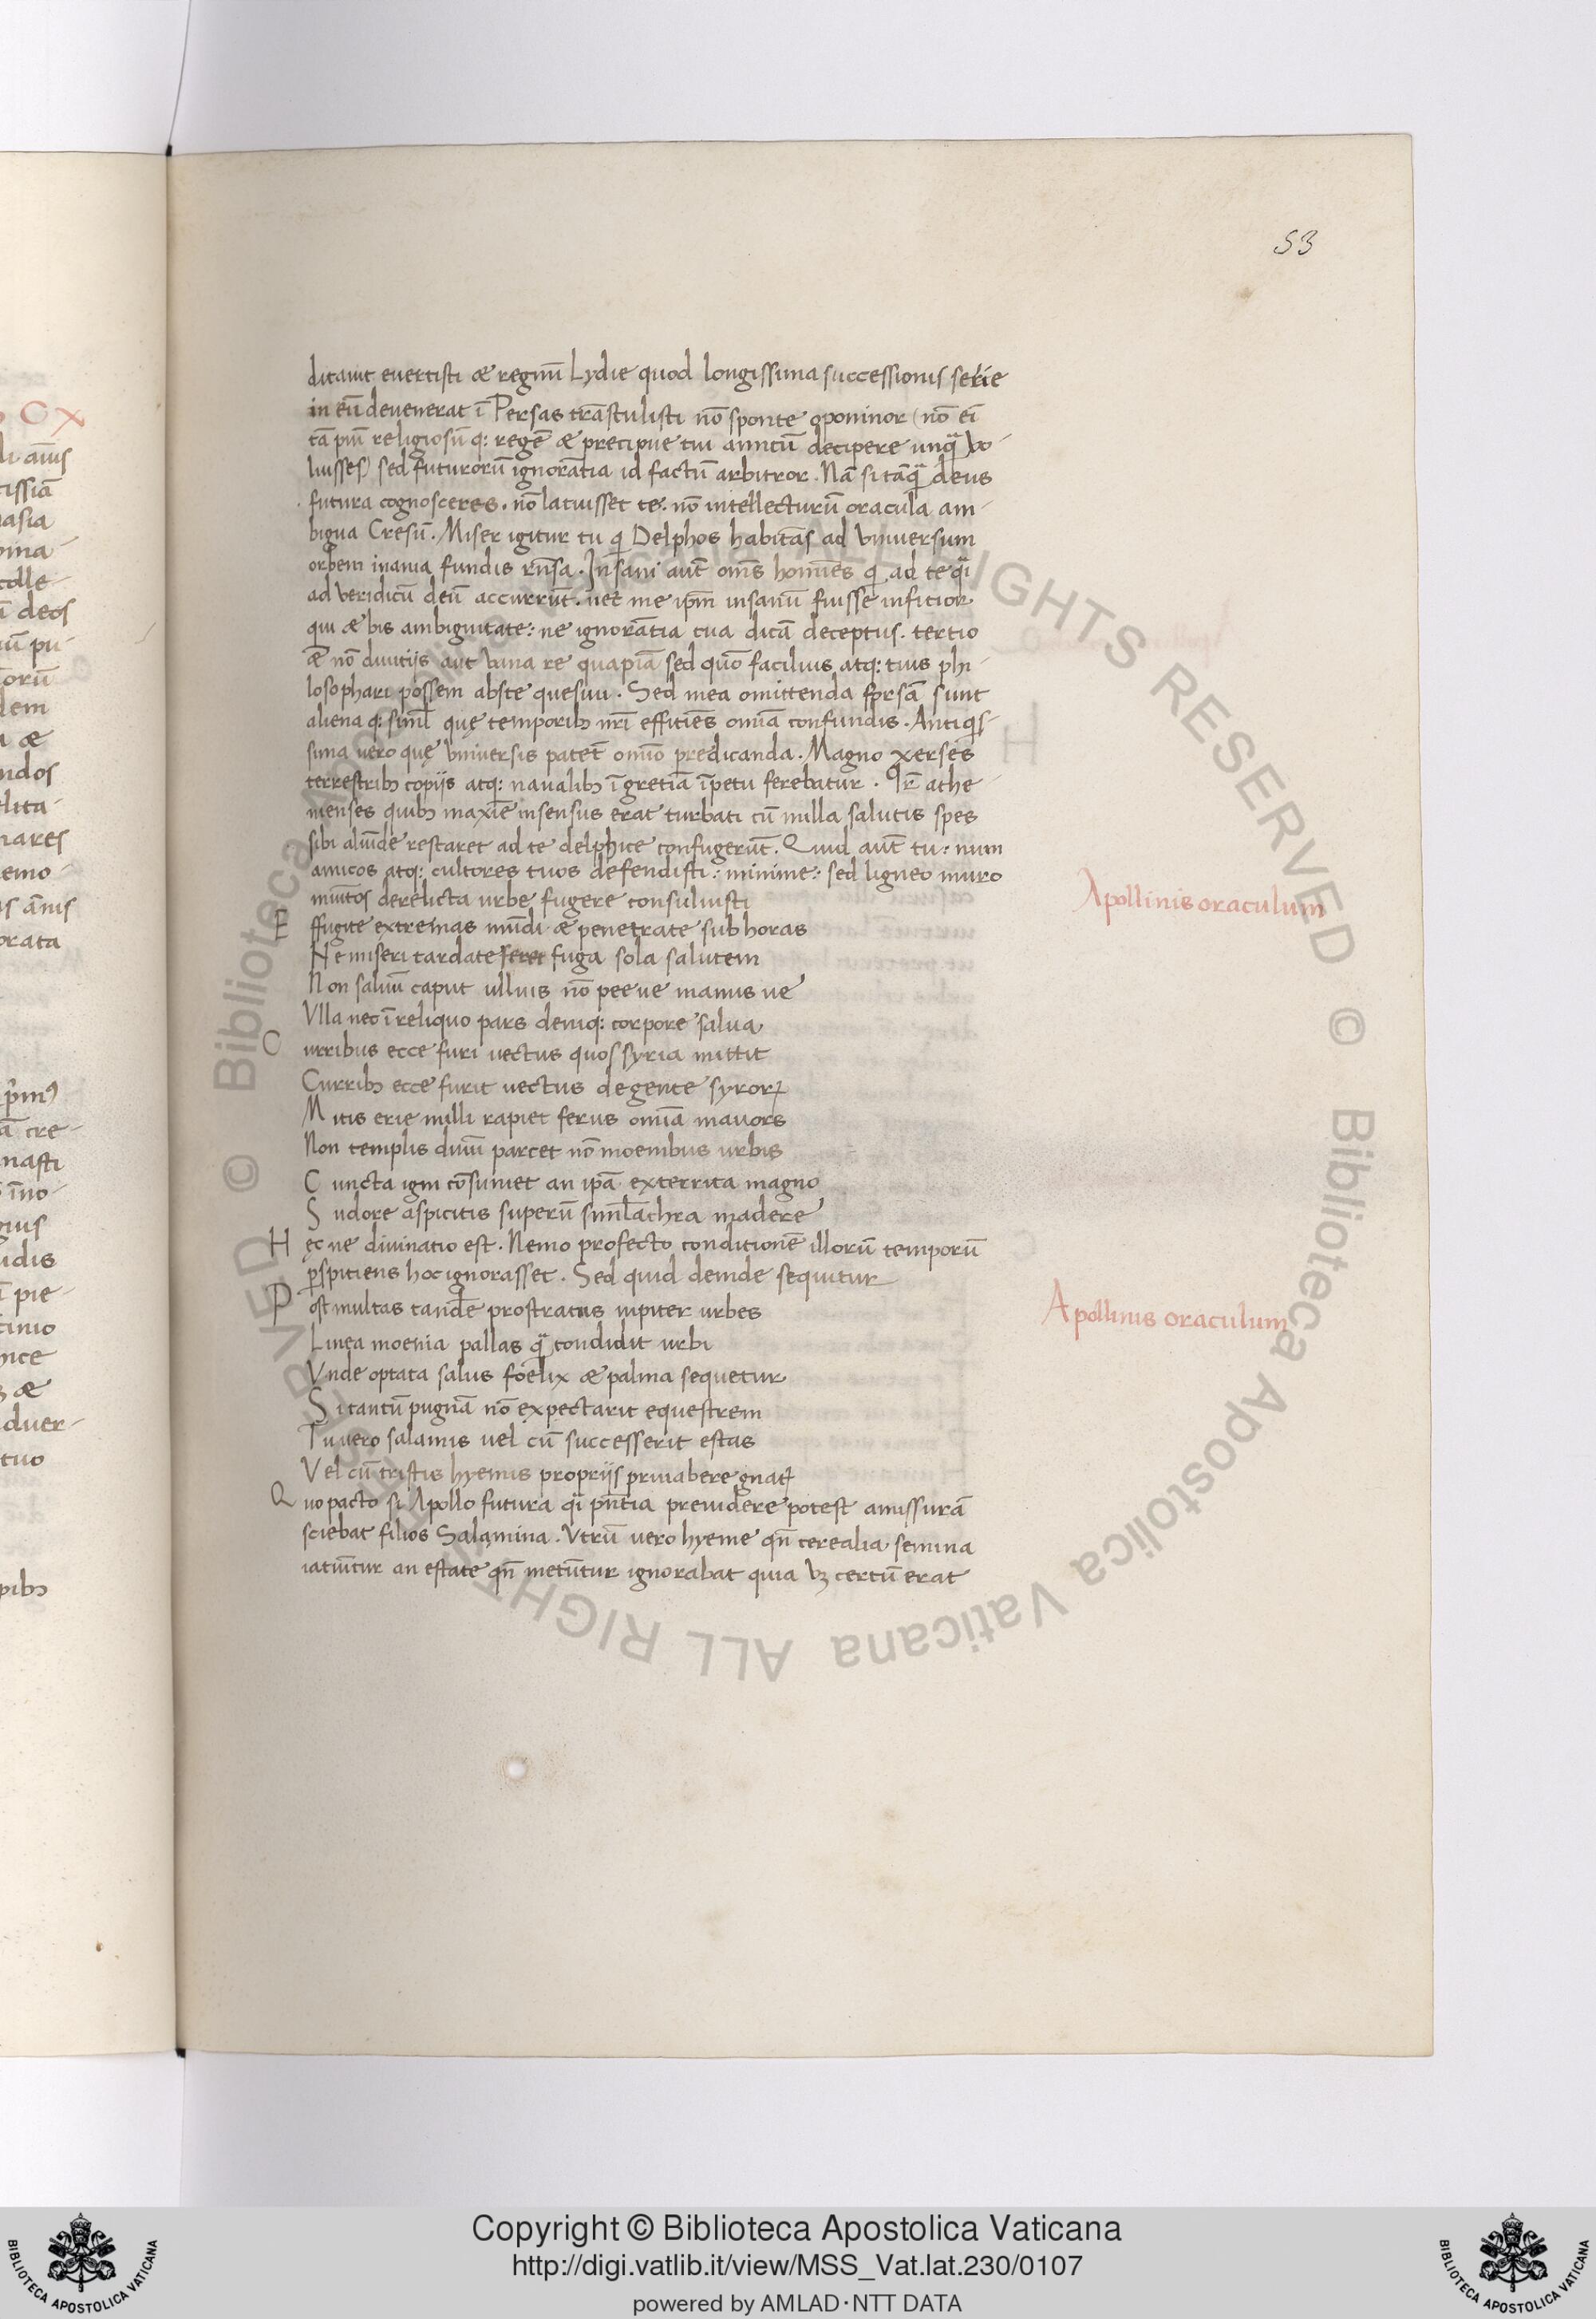 53
ditauit euertisti æ regnū Lydie quod longissima successionis serie
in eū deuenerat ī Persas trāstulisti nō sponte oponinor (nō eī
tā piū religiosū q: regē æ precipue tui amicū decipere unq̄ vo-
luisses) sed futurorū ignorātia id factū arbitror. Nā si tāq̄ deus
futura cognosceres. nō latuisset te: nō intellecturū oracula am-
bigua Cresū. Miser igitur tu q Delphos habitās ad vniuersum
orbem inania fundis rn̄sa. Insani aut̄ om̄s homīes q ad te q̄i
ad veridicū deū accurrūt. nec me ip̄m insanū fuisse inficior
qui æ bis ambiguitate: ne ignorātia tua dicā deceptus. tertio
æ nō diuitijs aut vana re quapiā sed quō facilius atq: tuis phi-
losophari possem abste quesiui. Sed mea omittenda forsā sunt
aliena q: siml̄ quę temporib3 nr̄i efficiēs omīa confundis. Antiqs-
sima uero quę vniuersis patēt omīo predicanda. Magno xerses
terrestrib3 copijs atq: naualib3 ī gretiā īpetu ferebatur. Ir̄ athe-
nienses quib3 maxīe insensus erat turbati cū nulla salutis spes
sibi aliūde restaret ad te delphice confugerūt. Quid aut̄ tu: num
amicos atq: cultores tuos defendisti: minime: sed ligneo muro
miūtos derelicta urbe fugere consuluisti
Apollinis oraculum
E ffugite extremas mūdi æ penetrate sub horas
Ne miseri tardate feret fuga sola salutem
Non saluū caput ullius nō peeue manus ue
Vlla nec ī reliquo pars deniq: corpore salua
C urribus ecce furi uectus quos syria mittit
Currib3 ecce furit uectus de gente syroꝝ
Mitis erie nulli rapiet ferus omīa mauors
Non templis diuū parcet nō moenibus urbis
C uncta igni cōsumet an ip̄a exterrita magno
S udore aspicitis superū siml̄achra madere
H ęc ne diuinatio est. Nemo profecto conditionē illorū temporū
ꝑspitiens hoc ignorasset. Sed quid deinde sequitur
Apollinis oraculum
P ost multas tandē prostratus iupiter urbes
Linea moenia pallas q̄ condidit urbi
Vnde optata salus foelix æ palma sequetur
Si tantū pugnā nō expectarit equestrem
Tu uero salamis uel cū successerit estas
Vel cū tristis hyemis proprijs priuabere gnatꝝ
Q uo pacto si Apollo futura q̄i pn̄tia preuidere potest amissurā
sciebat filios Salamina. Vtrū uero hyeme qn̄ cerealia semina
iatiūtur an estate qn̄ metūtur ignorabat quia v3 certū erat
© Biblioteca Apostolica Vaticana ALL RIGHTS RESERVED
Copyright © Biblioteca Apostolica Vaticana
http://digi.vatlib.it/view/MSS_Vat.lat.230/0107
powered by AMLAD·NTT DATA
BIBLIOTECA APOSTOLICA VATICANA
BIBLIOTECA APOSTOLICA VATICANA